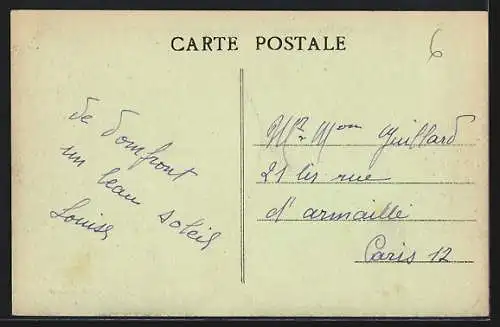 CARTE POSTALE
6
de Domfront
un beau soleil
Louise
Mr Mme Juillard
21 bis rue
d'armaillé
Paris 12